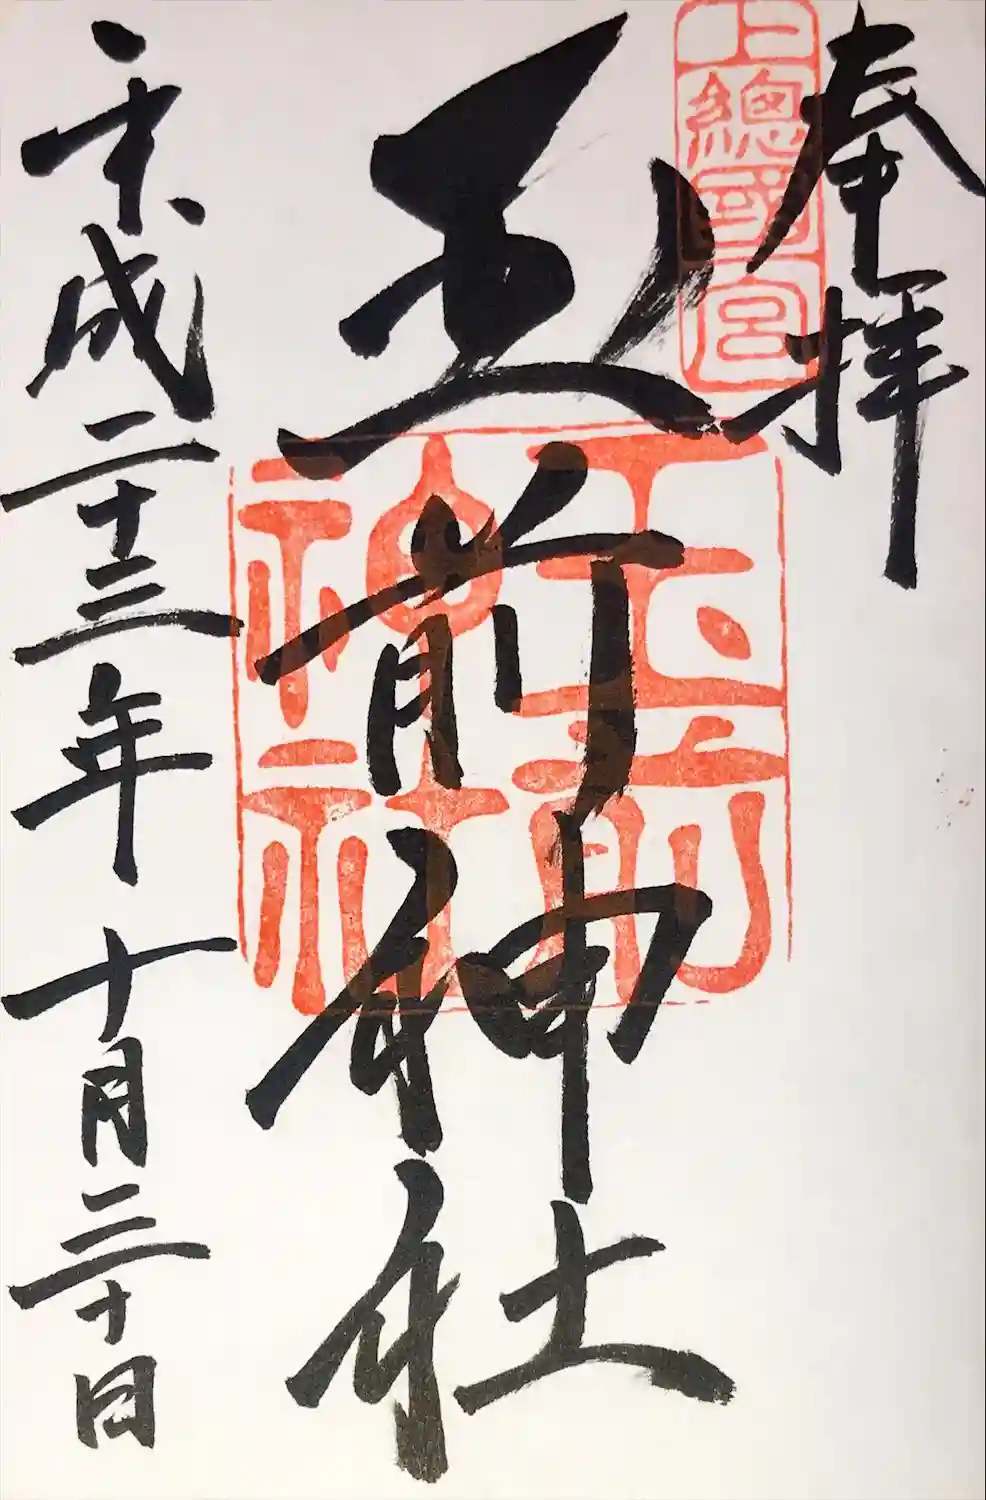 奉拝
上總國一宮
玉前神社
玉前神社
平成二十三年 十月三十日